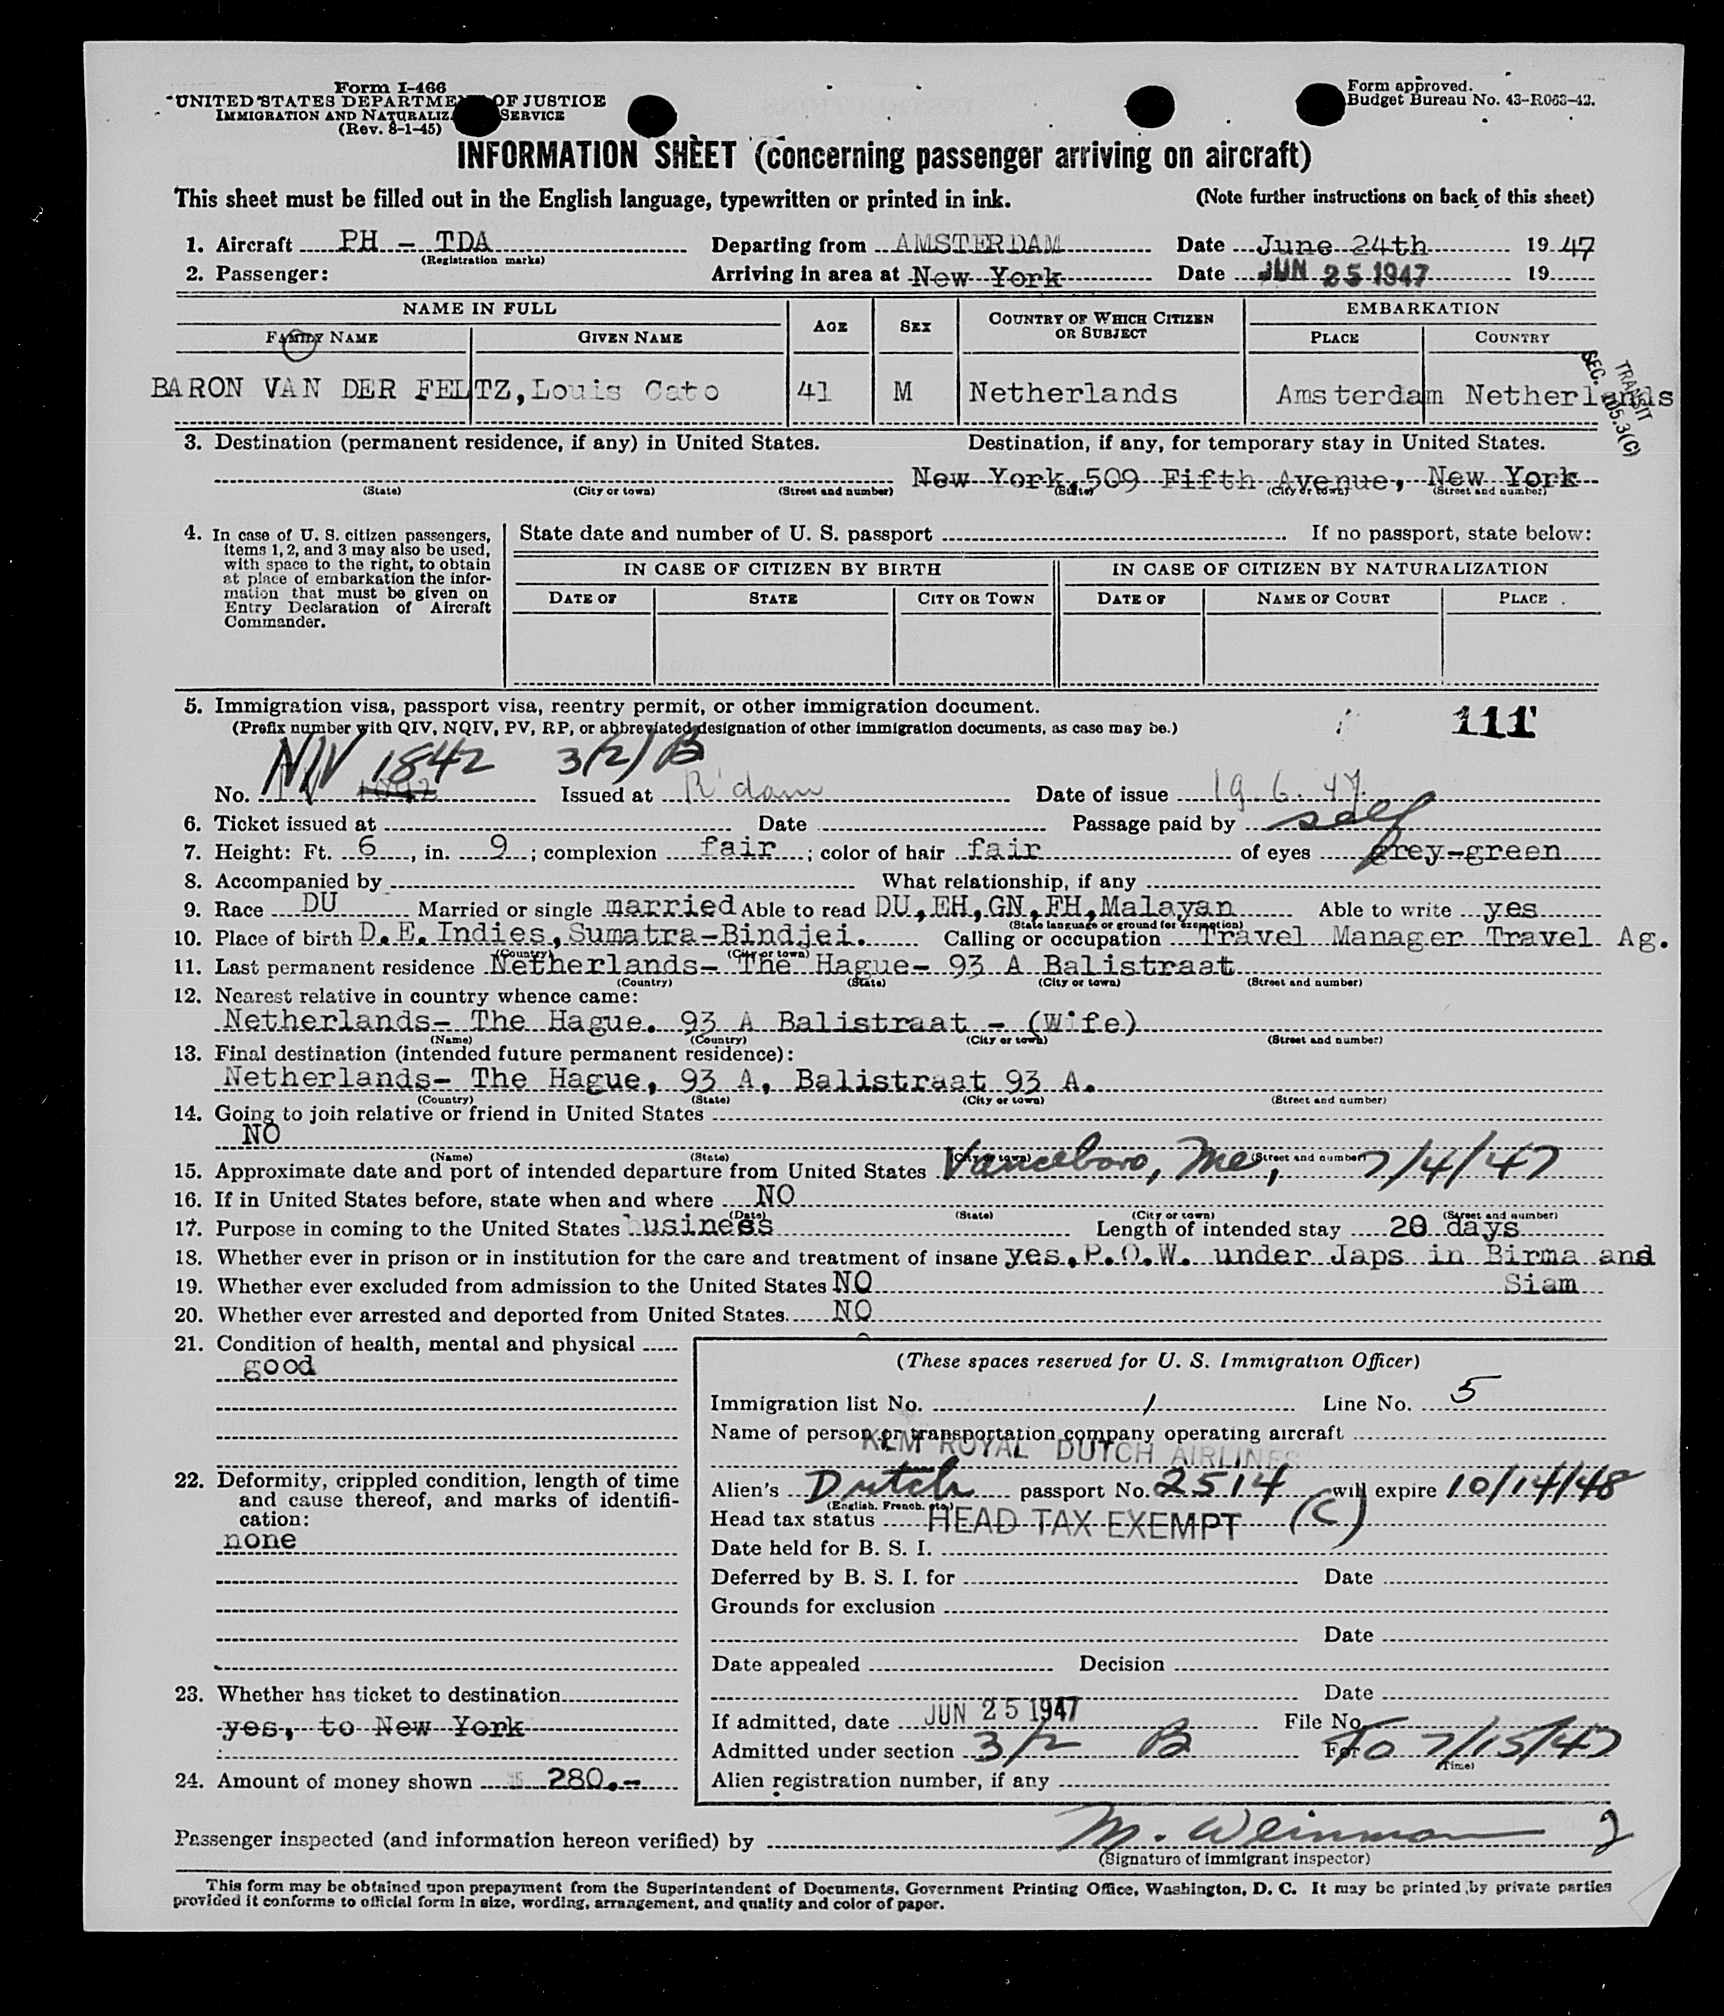 Form I-466
UNITED STATES DEPARTMENT OF JUSTICE
IMMIGRATION AND NATURALIZ SERVICE
(Rev. 8-1-45)
Form approved.
Budget Bureau No. 43-R063-42.
INFORMATION SHEET (concerning passenger arriving on aircraft)
This sheet must be filled out in the English language, typewritten or printed in ink. (Note further instructions on back of this sheet)
1. Aircraft PH - TDA Departing from AMSTERDAM Date June 24th 1947
(Registration marks)
2. Passenger: Arriving in area at New York Date JUN 25 1947 19
NAME IN FULL AGE SEX COUNTRY OF WHICH CITIZEN OR SUBJECT EMBARKATION
FAMILY NAME GIVEN NAME PLACE COUNTRY
BARON VAN DER FELTZ, Louis Cato 41 M Netherlands Amsterdam Netherlands
TRANSIT
SEC. 105.3(C)
3. Destination (permanent residence, if any) in United States. Destination, if any, for temporary stay in United States.
New York, 509 Fifth Avenue, New York
(State) (City or town) (Street and number) (State) (City or town) (Street and number)
4. In case of U. S. citizen passengers, items 1, 2, and 3 may also be used, with space to the right, to obtain at place of embarkation the information that must be given on Entry Declaration of Aircraft Commander.
State date and number of U. S. passport If no passport, state below:
IN CASE OF CITIZEN BY BIRTH IN CASE OF CITIZEN BY NATURALIZATION
DATE OF STATE CITY OR TOWN DATE OF NAME OF COURT PLACE
5. Immigration visa, passport visa, reentry permit, or other immigration document.
(Prefix number with QIV, NQIV, PV, RP, or abbreviated designation of other immigration documents, as case may be.) 111
NIV 1842 3(2)B
No. 1842 Issued at R'dam Date of issue 19.6.47.
6. Ticket issued at Date Passage paid by self
7. Height: Ft. 6, in. 9; complexion fair; color of hair fair of eyes grey-green
8. Accompanied by What relationship, if any
9. Race DU Married or single married Able to read DU, EH, GN, FH, Malayan Able to write yes
(State language or ground for exemption)
10. Place of birth D.E. Indies, Sumatra-Bindjei. Calling or occupation Travel Manager Travel Ag.
(Country) (City or town)
11. Last permanent residence Netherlands- The Hague- 93 A Balistraat
(Country) (State) (City or town) (Street and number)
12. Nearest relative in country whence came:
Netherlands- The Hague. 93 A Balistraat - (Wife)
(Name) (Country) (City or town) (Street and number)
13. Final destination (intended future permanent residence):
Netherlands- The Hague, 93 A, Balistraat 93 A.
(Country) (State) (City or town) (Street and number)
14. Going to join relative or friend in United States
NO
(Name) (State) (City or town) (Street and number)
15. Approximate date and port of intended departure from United States Vanceboro, Me, 7/4/47
16. If in United States before, state when and where NO
(Date) (State) (City or town) (Street and number)
17. Purpose in coming to the United States business Length of intended stay 20 days
18. Whether ever in prison or in institution for the care and treatment of insane yes, P.O.W. under Japs in Birma and
19. Whether ever excluded from admission to the United States NO Siam
20. Whether ever arrested and deported from United States. NO
21. Condition of health, mental and physical
good
22. Deformity, crippled condition, length of time and cause thereof, and marks of identification:
none
23. Whether has ticket to destination
yes, to New York
24. Amount of money shown $ 280.-
(These spaces reserved for U. S. Immigration Officer)
Immigration list No. 1 Line No. 5
Name of person or transportation company operating aircraft
KLM ROYAL DUTCH AIRLINES
Alien's Dutch passport No. 2514 will expire 10/14/48
(English, French, etc.)
Head tax status HEAD TAX EXEMPT (C)
Date held for B. S. I.
Deferred by B. S. I. for Date
Grounds for exclusion
Date
Date appealed Decision
Date
If admitted, date JUN 25 1947 File No.
Admitted under section 3/2 B For To 7/15/47
(Time)
Alien registration number, if any
Passenger inspected (and information hereon verified) by M. Weinman 2
(Signature of immigrant inspector)
This form may be obtained upon prepayment from the Superintendent of Documents, Government Printing Office, Washington, D. C. It may be printed by private parties
provided it conforms to official form in size, wording, arrangement, and quality and color of paper.